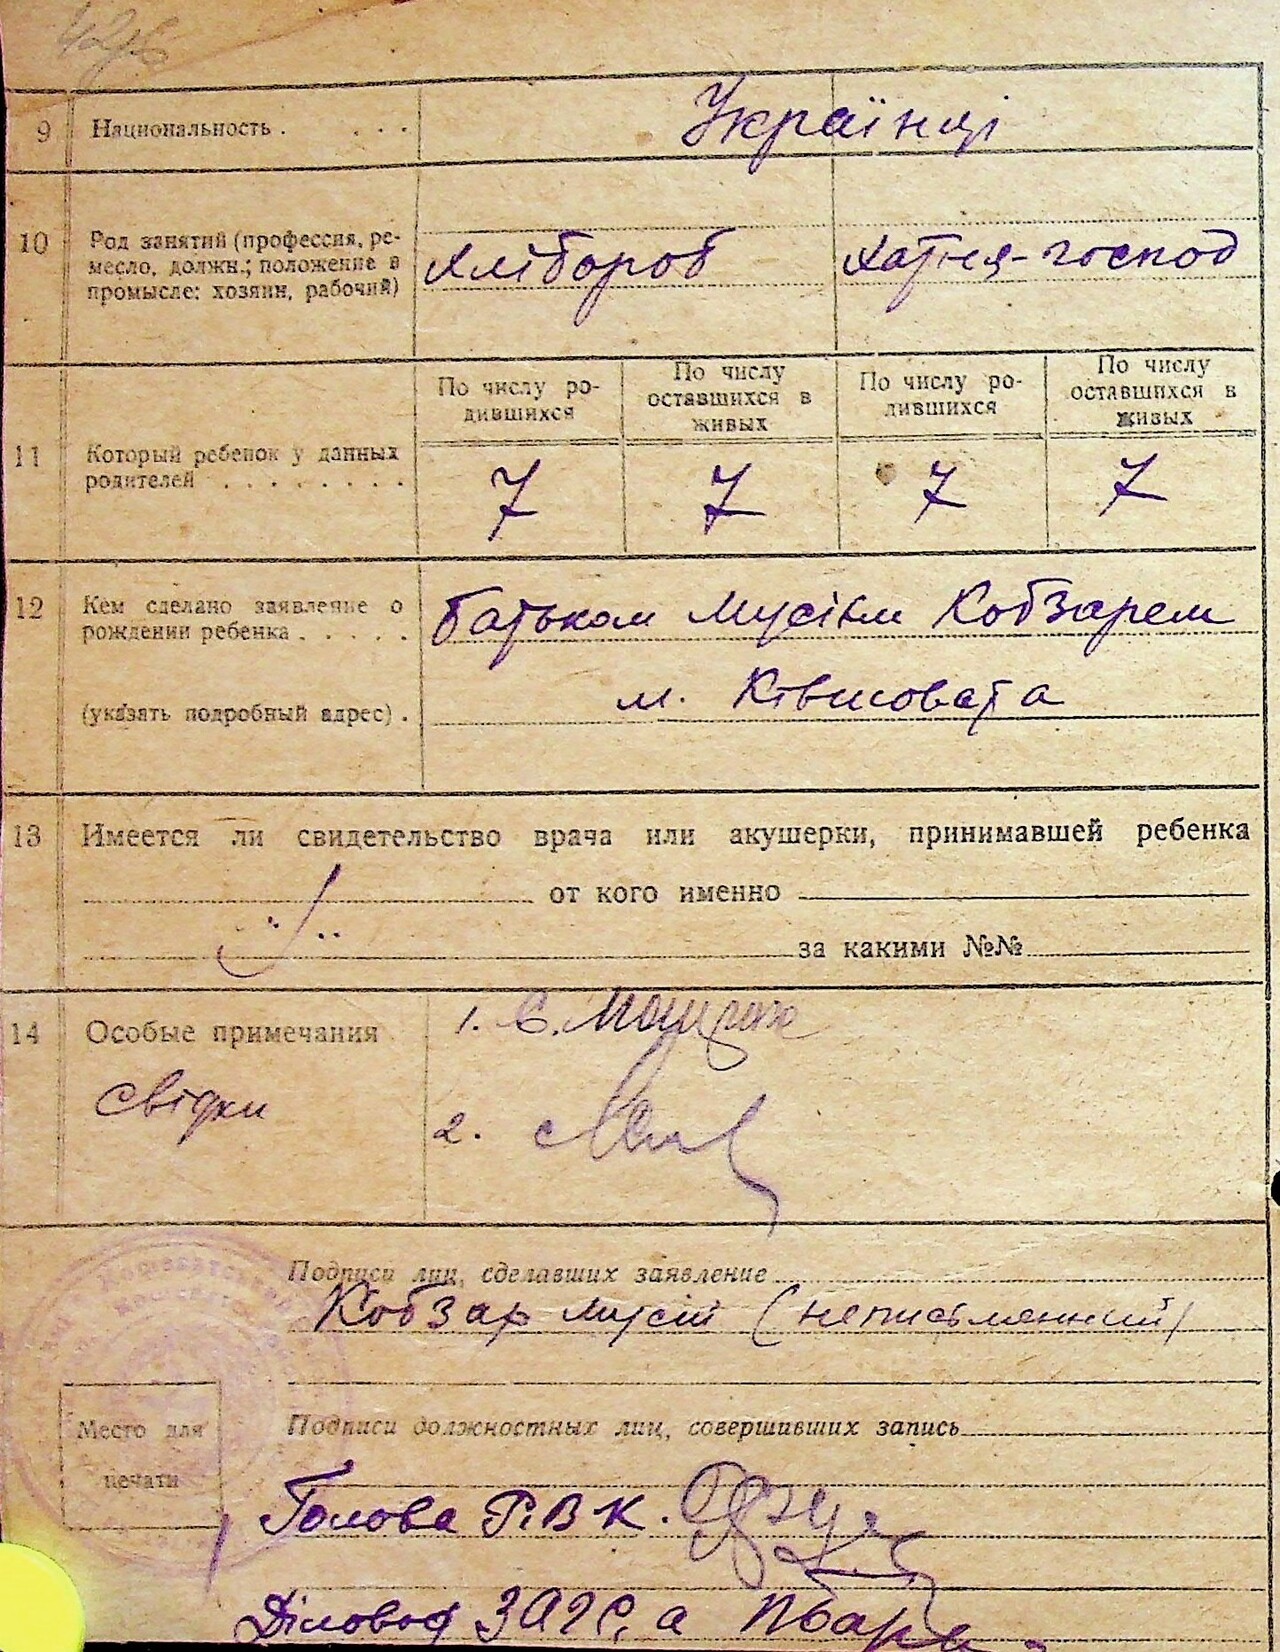 9 Национальность . . . . Українці
10 Род занятий (профессия, ре-
месло, должн.; положение в
промысле: хозяин, рабочий)
Хлібороб Хатня-господ
11 Который ребенок у данных
родителей . . . . . . . .
По числу ро-
дившихся
По числу
оставшихся в
живых
По числу ро-
дившихся
По числу
оставшихся в
живых
7 7 7 7
12 Кем сделано заявление о
рождении ребенка . . . . .
(указать подробный адрес) .
Батьком Мусієм Кобзарем
м. Ківшовата
13 Имеется ли свидетельство врача или акушерки, принимавшей ребенка
от кого именно
за какими №№
14 Особые примечания
свідки
1. С.
2.
Подписи лиц, сделавших заявление
Кобзар Мусій (неписьменний)
Место для
печати
Подписи должностных лиц, совершивших запись
Голова Р.В.К.
Діловод ЗАГС,а